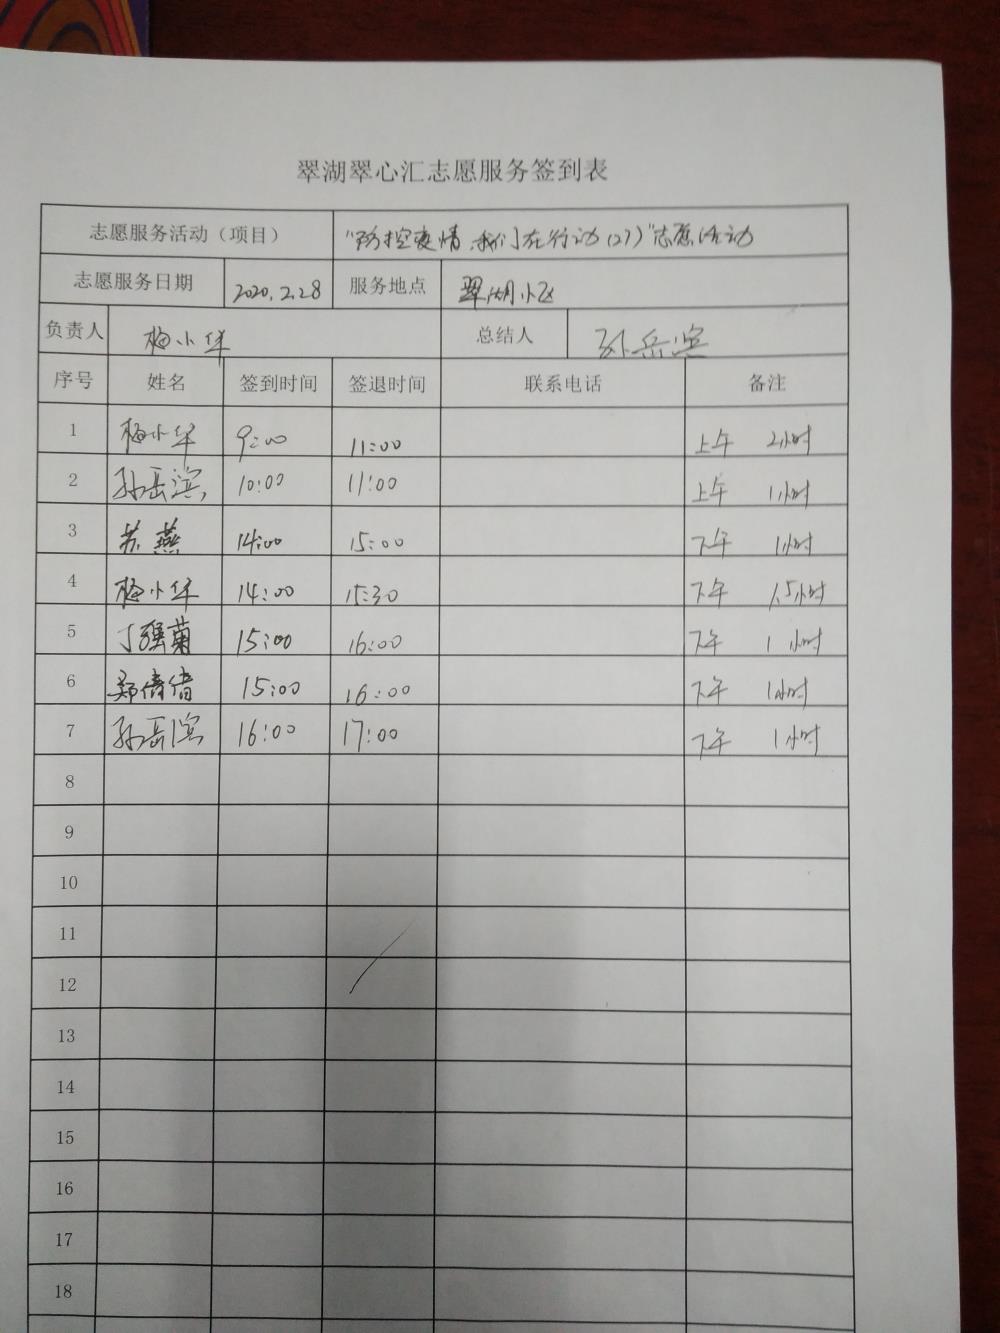 翠湖翠心汇志愿服务签到表
志愿服务活动（项目） "防控疫情、我们在行动（27）"志愿活动
志愿服务日期 2020.2.28 服务地点 翠湖小区
负责人 梅小华 总结人 孙岳滨
序号 姓名 签到时间 签退时间 联系电话 备注
1 梅小华 9:00 11:00 上午 2小时
2 孙岳滨 10:00 11:00 上午 1小时
3 苏燕 14:00 15:00 下午 1小时
4 梅小华 14:00 15:30 下午 1.5小时
5 丁强菊 15:00 16:00 下午 1小时
6 郑倩倩 15:00 16:00 下午 1小时
7 孙岳滨 16:00 17:00 下午 1小时
8
9
10
11
12
13
14
15
16
17
18